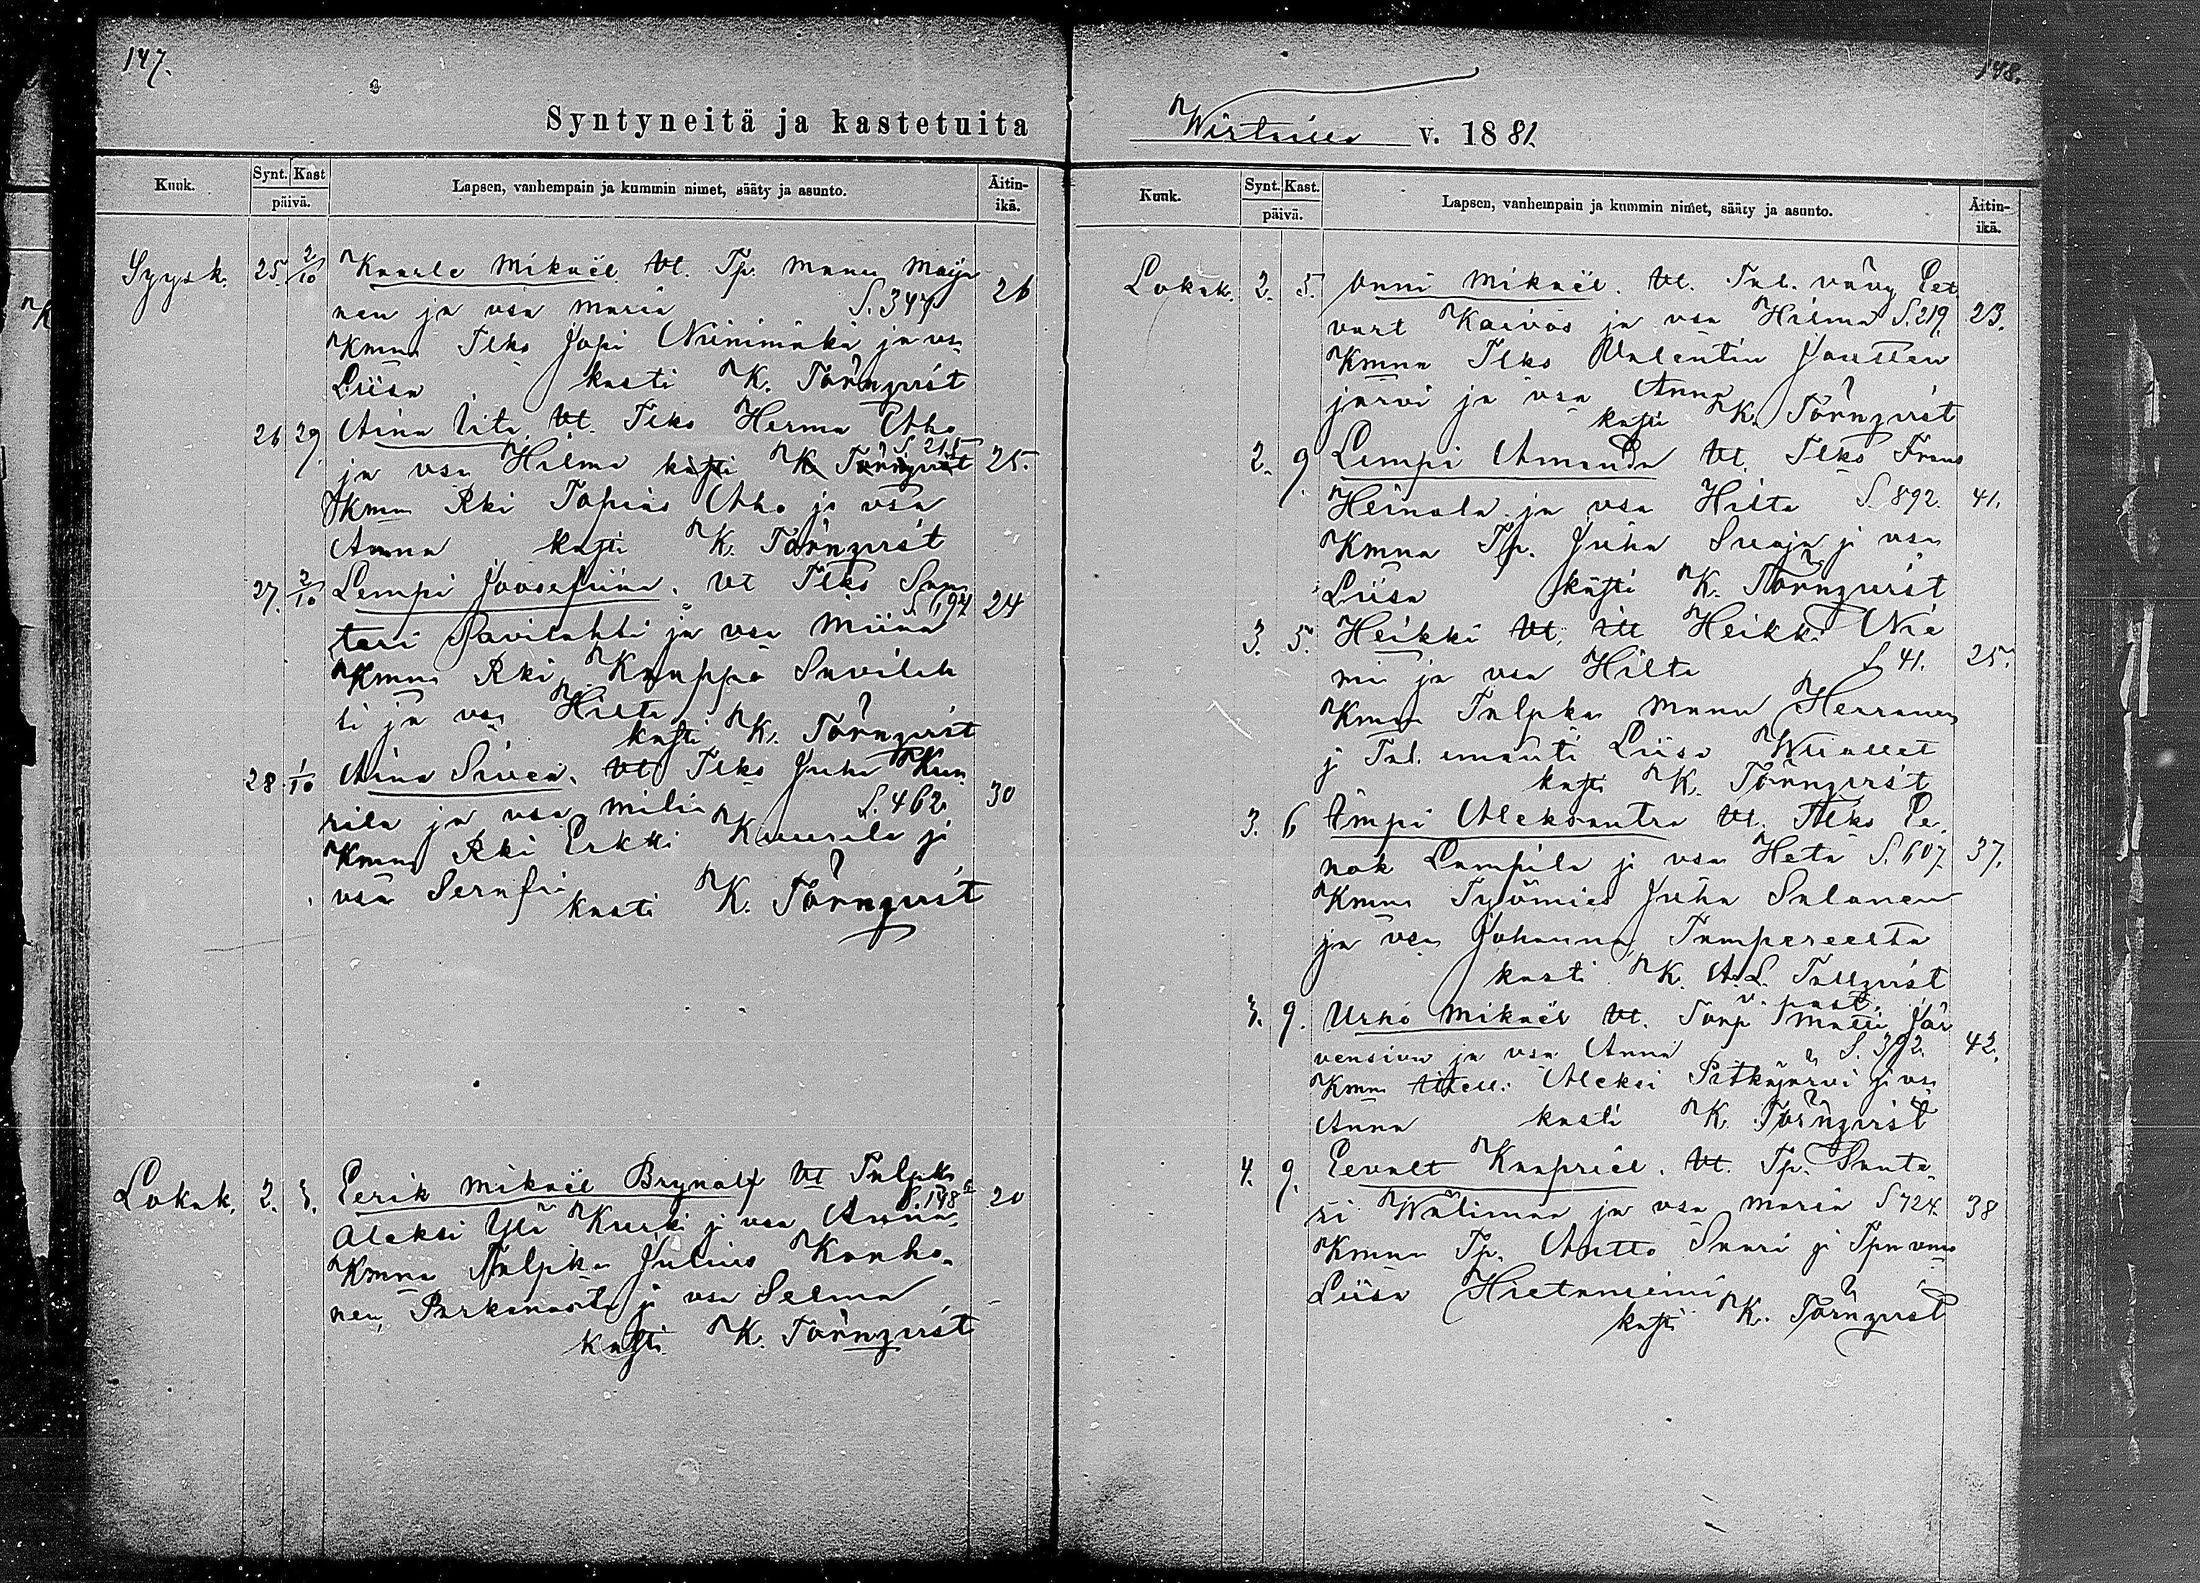 147.
Syntyneitä ja kastetuita
Kuuk. Synt. Kast päivä. Lapsen, vanhempain ja kummin nimet, sääty ja asunto. Äitin-ikä.
Syysk. 25. 2/10 Kaarle Mikaël. Vt. Tp. Manu Maija
nen ja vsa Maria S. 347 26
Kmma Tlko Jopi Niinimäki ja vsa
Liisa kasti K. Törnqvist
26 29 Aina Iita. Vt. Tlko Herma Aho
ja vsa Hilma S. 215 25.
Kmm Rki Topias Aho ja vsa
Anna kasti K. Törnqvist
27. 2/10 Lempi Joosefiina. Vt Tlko San
teri Savilahti ja vsa Miina S. 694 24
Kmma Rki Kaappo Savilah
ti ja vsa Hilta
kasti K. Törnqvist
28. 1/10 Aina Siviä. Vt Tlko Juha Kuu
rila ja vsa Milia S. 462 30
Kmma Rki Erkki Kuurila ja
vsa Serafi kasti K. Törnqvist
Lokak. 2. 3. Eerik Mikaël Brynolf Vt Talpka
Aleksi Ylä Kurki j vsa Anna S. 148 20
Kmma Talpka Julius Konho
nen, Parkanosta j vsa Selma
kasti K. Törnqvist
148.
v. 1881.
Kuuk. Synt. Kast. päivä. Lapsen, vanhempain ja kummin nimet, sääty ja asunto. Äitin-ikä.
Lokak. 2. 5. Anni Mikaël. Vt. Tal. vävy Eet
vart Kaivos ja vsa Hilma S. 219 23.
Kmma Tlko Valentin Joutten
järvi ja vsa Anna
kasti K. Törnqvist
2. 9. Lempi Amanda Vt. Tlko Frans
Heinola ja vsa Hilta S. 892. 41.
Kmma Tp. Juha Suoja j vsa
Liisa kasti K. Törnqvist
3. 5. Heikki Vt. Heikki Nie
mi ja vsa Hilta S. 41. 25.
Kmma Talpka Manu Herranen
j Tal. emäntä Liisa
kasti K. Törnqvist
3. 6 Impi Aleksantra Vt. Tlko Ee.
nok Lampila j vsa Heta S. 607 37.
Kmma Työmies Juha Salonen
ja vsa Johanna, Tampereelta
kasti K. A. L. Tallqvist
v. past.
3. 9. Urho Mikaël Vt. Torp Matti Jär
vensivu ja vsa Anna S. 392. 42.
Kmma Aleksi Pitkäjärvi j vsa
Anna kasti K. Törnqvist
4. 9. Eevalt Kaapriel. Vt. Tp. Sante
ri Wälimaa ja vsa Maria S 724. 38
Kmma Tp. Antto Saari j Tpn vmo
Liisa Hietaniemi
kasti K. Törnqvist